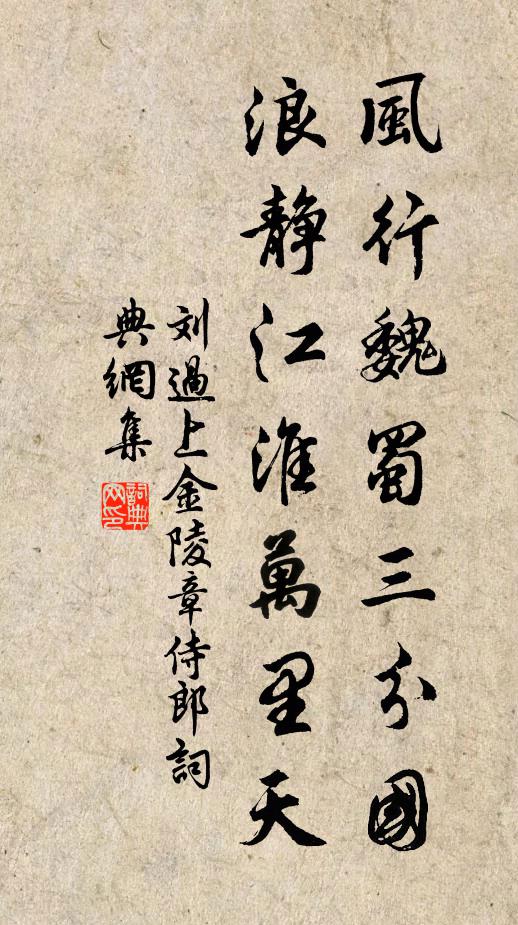 風行魏蜀三分國
浪静江淮萬里天
刘過上金陵章侍郎詞
典網集
詞典
网印